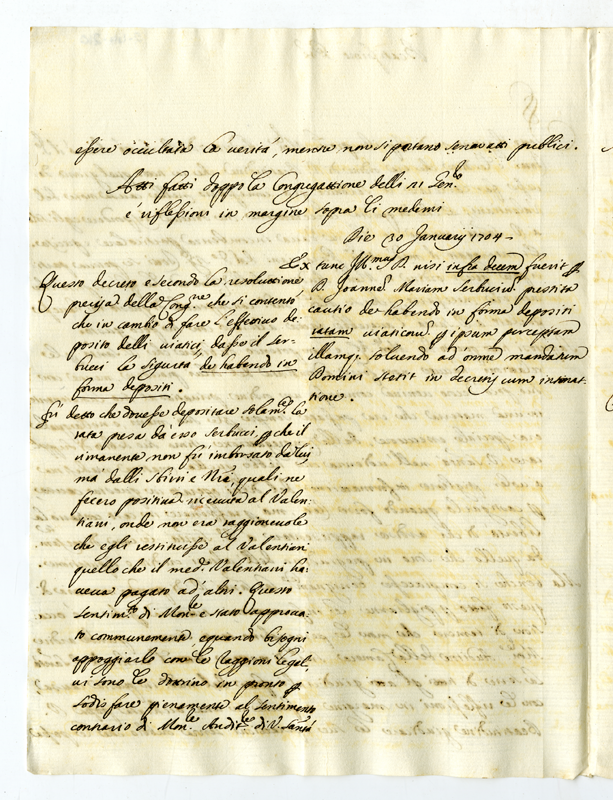 essere occultata la verità, mentre non si portano senon atti publici.
Atti fatti doppo la Congregattione delli 21 Gen.º
é riflessioni in margine sopra li medemi
Die 30 Januarij 1704 -
Ex tunc Ill.mus D. nisi infra decem fuerit p
D. Joannem Mariam Serbuciu prestita
cautio de habendo in forma depositi
ratam viaticoru p ipsum perceptam
illamq. solvendo ad omne mandatum
Domini stetit in decretis cum intimat-
tione.
Questo decreto e secondo la resoluttione
precisa della Cong.ne che si contentò,
che in cambio di fare l'effettivo de:
posito delli viatici, dasse il Ser-
bucci la sigurtà, de habendo in
forma depositi.
fù detto che dovesse depositare solam.te la
rata presa da esso Serbucci, p che il
rimanente non fù imborsato da lui
mà dalli Sbirri e quali ne
fecero positiva ricevuta al Valen:
tiani, onde non era raggionevole
che egli restituisse al Valentiani
quello che il med. Valentiani ha:
veva pagato ad' altri. Questo
sentim.to di Mon.re e stato approva:
to communemente, e quando bisogni
appoggiarlo con le raggioni legali
vi sono le dottrine in pronto p
sodisfare pienamente al sentimento
contrario di Mon.re Audit.re di V. Santà